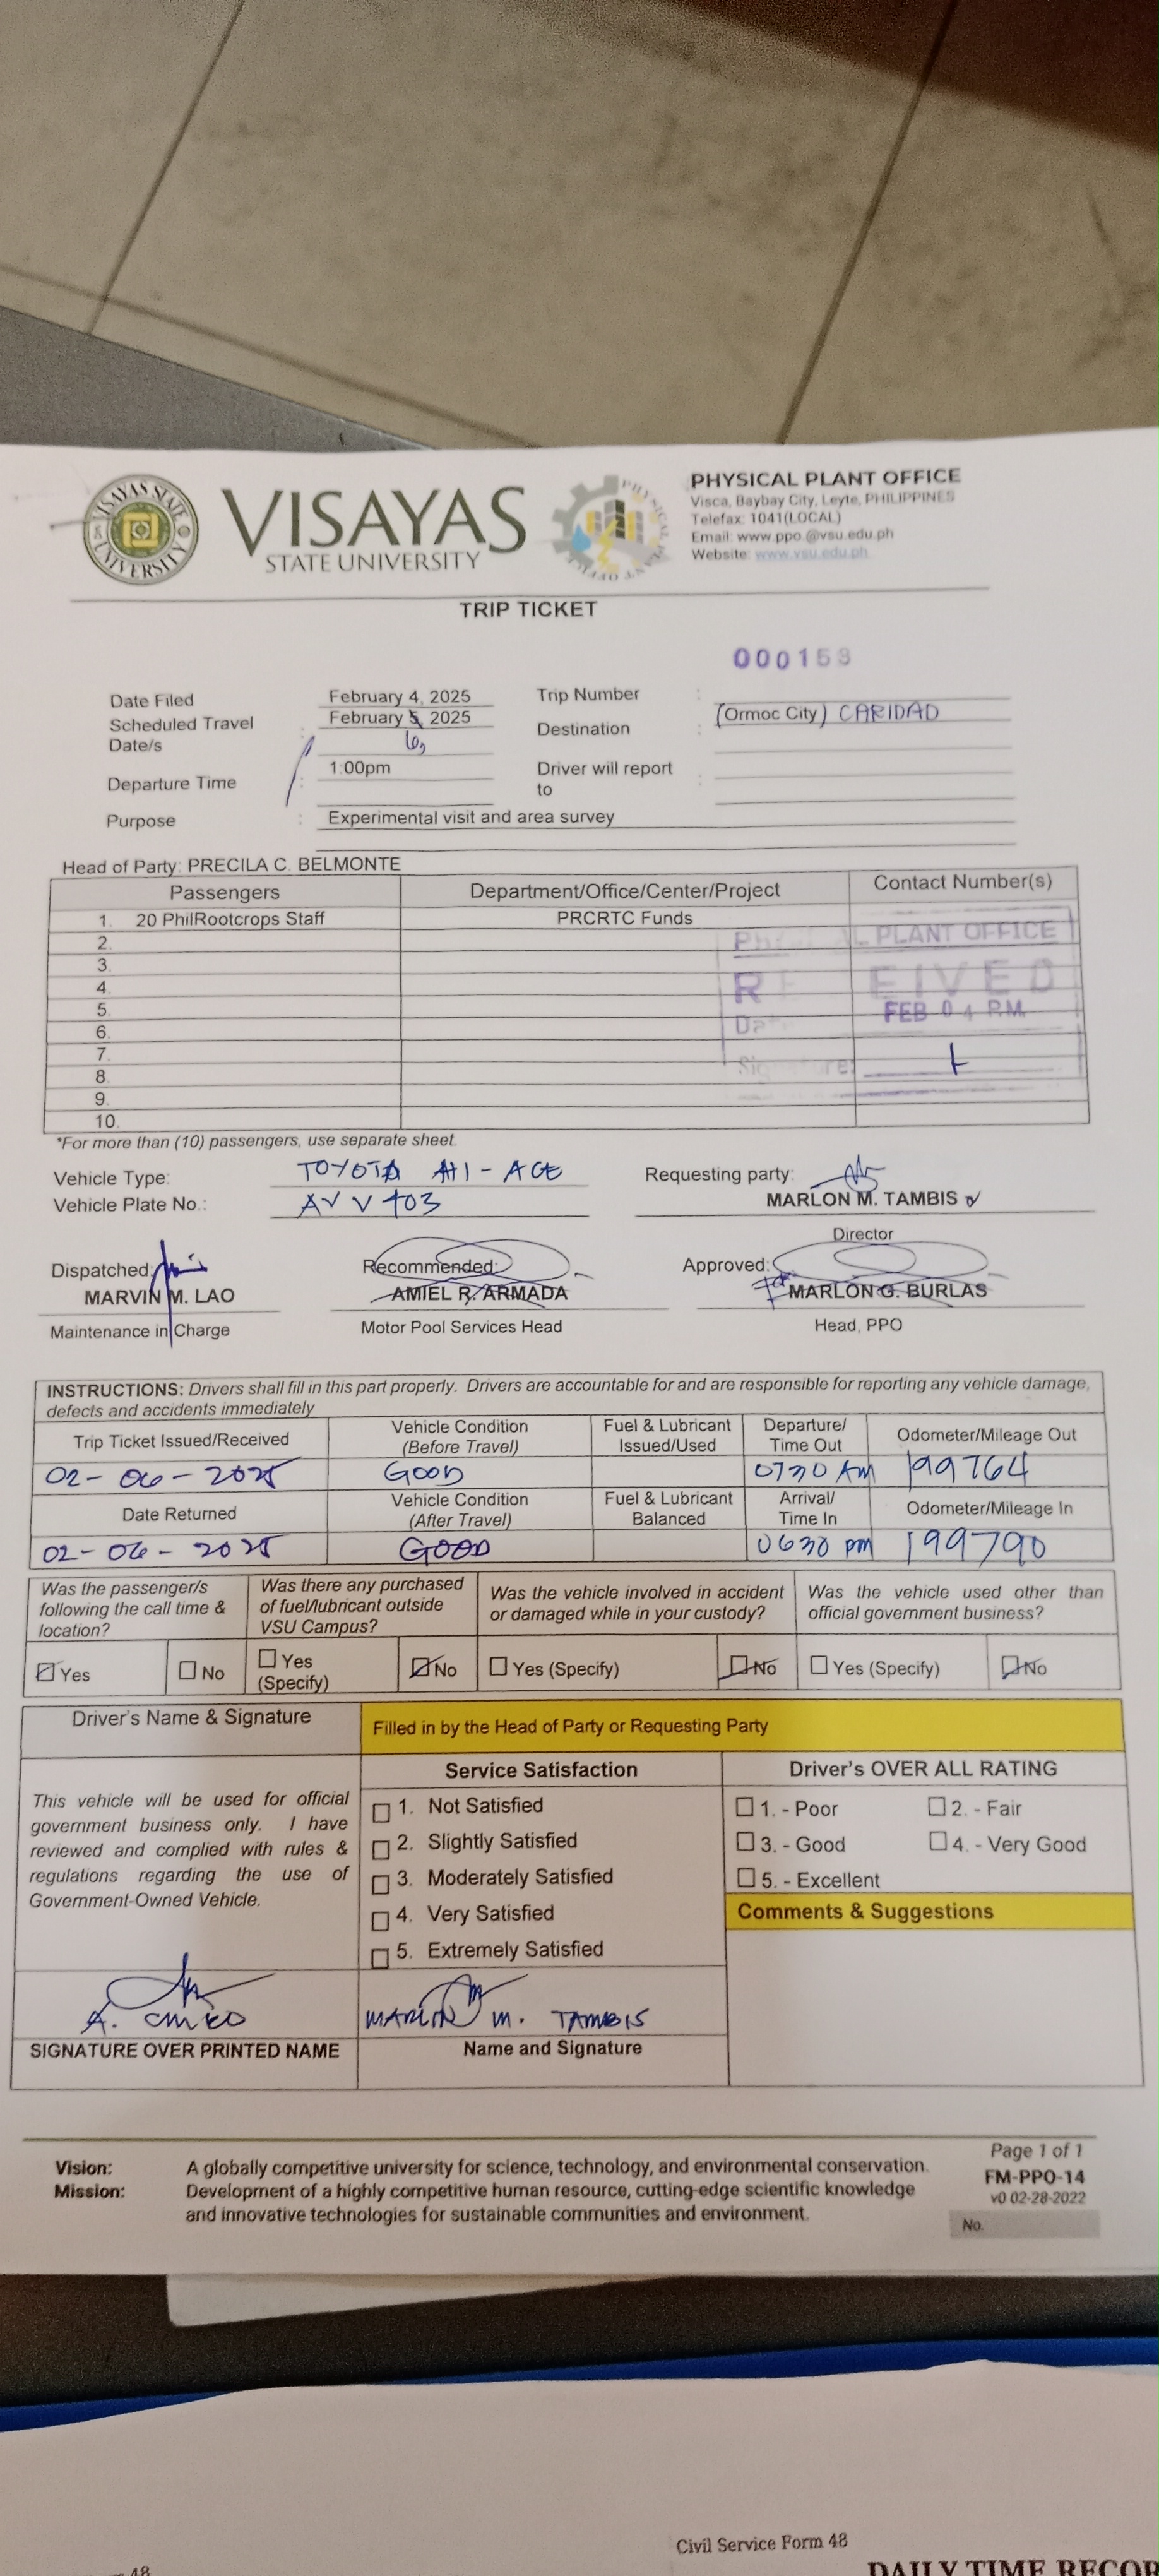 VISAYAS STATE UNIVERSITY
VISAYAS
STATE UNIVERSITY
PHYSICAL PLANT OFFICE
Visca, Baybay City, Leyte, PHILIPPINES
Telefax: 1041(LOCAL)
Email: www.ppo.@vsu.edu.ph
Website: www.vsu.edu.ph
TRIP TICKET
000153
Date Filed February 4, 2025 Trip Number :
Scheduled Travel Date/s : February 5, 2025 6, Destination : (Ormoc City) CARIDAD
Departure Time : 1:00pm Driver will report to :
Purpose : Experimental visit and area survey
Head of Party: PRECILA C. BELMONTE
Passengers Department/Office/Center/Project Contact Number(s)
1. 20 PhilRootcrops Staff PRCRTC Funds
2.
3.
4.
5.
6.
7.
8.
9.
10.
PLANT OFFICE
FEB 04 P.M.
*For more than (10) passengers, use separate sheet.
Vehicle Type: TOYOTA HI-ACE Requesting party:
Vehicle Plate No.: AVV 403 MARLON M. TAMBIS
Director
Dispatched: Recommended: Approved:
MARVIN M. LAO AMIEL R. ARMADA For MARLON G. BURLAS
Maintenance in Charge Motor Pool Services Head Head, PPO
INSTRUCTIONS: Drivers shall fill in this part properly. Drivers are accountable for and are responsible for reporting any vehicle damage,
defects and accidents immediately
Trip Ticket Issued/Received Vehicle Condition (Before Travel) Fuel & Lubricant Issued/Used Departure/ Time Out Odometer/Mileage Out
02-06-2025 GOOD 0730 AM 199764
Date Returned Vehicle Condition (After Travel) Fuel & Lubricant Balanced Arrival/ Time In Odometer/Mileage In
02-06-2025 GOOD 0630 pm 199790
Was the passenger/s following the call time & location? Was there any purchased of fuel/lubricant outside VSU Campus? Was the vehicle involved in accident or damaged while in your custody? Was the vehicle used other than official government business?
Yes No Yes (Specify) No Yes (Specify) No Yes (Specify) No
Driver's Name & Signature Filled in by the Head of Party or Requesting Party
Service Satisfaction Driver's OVER ALL RATING
This vehicle will be used for official
government business only. I have
reviewed and complied with rules &
regulations regarding the use of
Government-Owned Vehicle.
1. Not Satisfied
2. Slightly Satisfied
3. Moderately Satisfied
4. Very Satisfied
5. Extremely Satisfied
1. - Poor 2. - Fair
3. - Good 4. - Very Good
5. - Excellent
Comments & Suggestions
A. MARLON M. TAMBIS
SIGNATURE OVER PRINTED NAME Name and Signature
Page 1 of 1
FM-PPO-14
v0 02-28-2022
No.
Vision: A globally competitive university for science, technology, and environmental conservation.
Mission: Development of a highly competitive human resource, cutting-edge scientific knowledge
and innovative technologies for sustainable communities and environment.
Civil Service Form 48
48
DAILY TIME RECOR